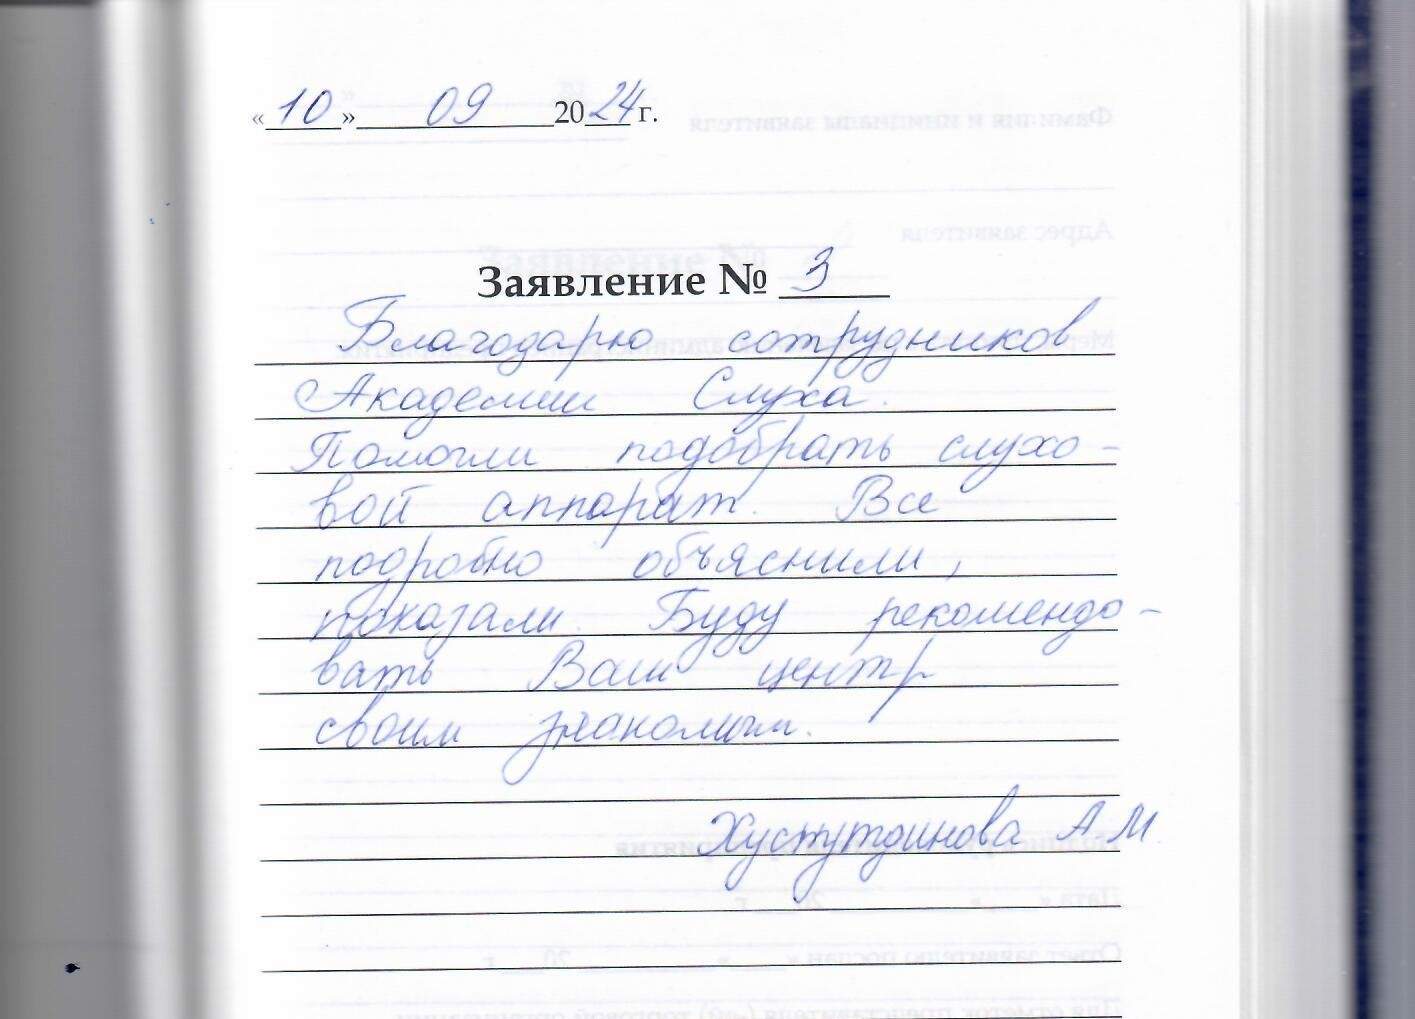 «10» 09 2024 г.
Заявление № 3
Благодарю сотрудников
Академии Слуха.
Помогли подобрать слухо-
вой аппарат. Все
подробно объяснили,
показали. Буду рекомендо-
вать Ваш центр
своим знакомым.
Хуснутдинова А.М